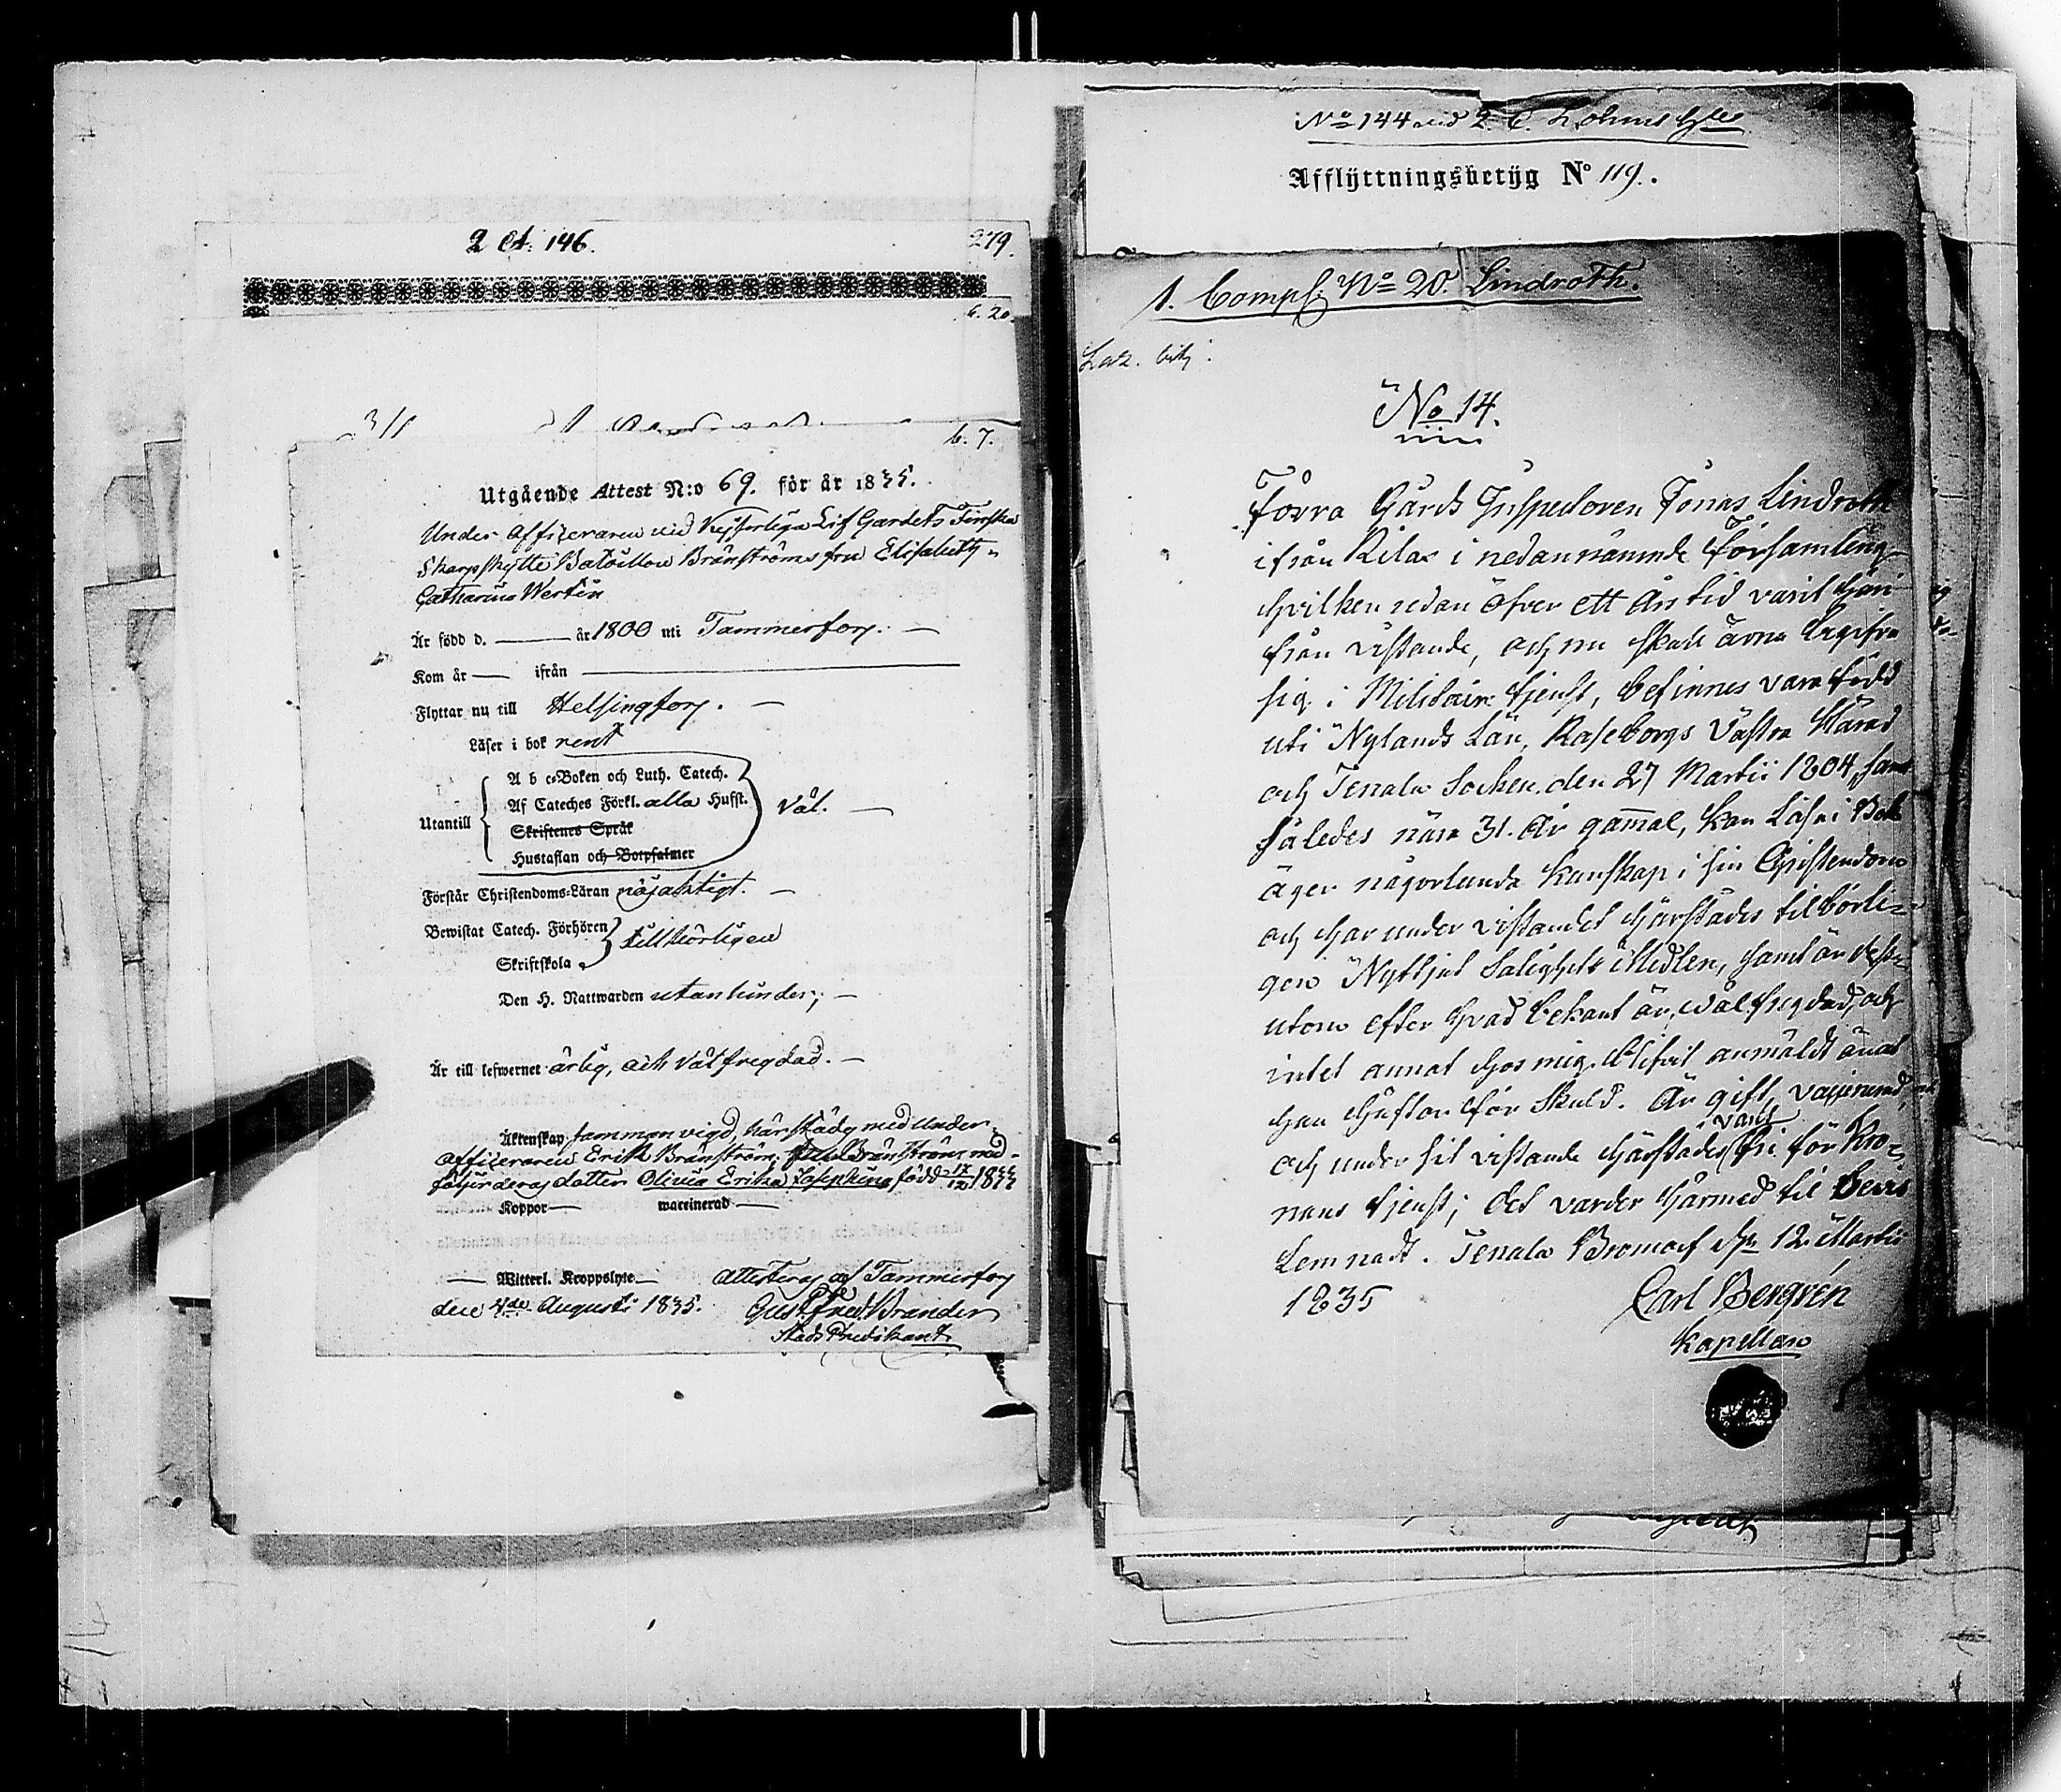 2 Ct. 146.
279.
b. 20.
b. 7.
Utgående Attest N:o 69. för år 1835.
Under Officeraren vid Kejserliga Lif Gardets Finska
Skarpskytte Bataillon Bränströms fru Elisabeth
Catharina Wertin
Är född d. ——— år 1800 uti Tammerfors. —
Kom år — ifrån ———
Flyttar nu till Helsingfors. —
Läser i bok rent
Utantill
A b c-Boken och Luth. Catech.
Af Cateches Förkl. alla Hufst.
Skriftenes Språk
Hustaflan och Botpsalmer
väl. —
Förstår Christendoms-Läran nöjaktigt. —
Bewistat Catech. Förhören
Skriftskola
tillbörligen
Den H. Nattwarden utan hinder; —
Är till lefwernet ärlig, och Välfregdad. —
Äktenskap sammanvigd härstädes med Under-
officeraren Erik Bränström; Bränström med-
följer deras dotter Olivia Erika Josephina född 17/12 1833
Koppor — waccinerad —
— Witterl. Kroppslyte — Attesteras af Tammerfors
den 4de Augusti 1835. Gust. Fred. Brander
Stads Predikant
No 144 vid 2. C. Lohms
Afflyttningsbetyg No 119.
1. Comp. No 20. Lindroth.
No 14.
Förra Gårds Inspectoren Jonas Lindroth
ifrån Rilax i nedannämnde Församling
hvilken redan öfver ett års tid varit häri-
från vistande, och nu skall ärna begifva
sig i Militair tjenst, befinnes vara född
uti Nylands Län, Raseborgs Västra Härad
och Tenala Socken den 27 Martii 1804, samt
således nära 31. År gammal, kan Läsa i Bok
äger någorlunda kunskap i sin Christendom
och har under vistandet härstädes tilbörli-
gen Nyttjat Salighets Medlen, samt är dess-
utom efter hvad bekant är, välfregdad, och
intet annat hos mig blifvit anmäldt än at
han häftar för skuld. Är gift, vaccinerad, och
och under sit vistande härstädes varit fri för Kro-
nans tjenst; det varder härmed til Bevis
Lemnadt. Tenala Bromarf d. 12 Martii
1835
Carl Bergrén
Kapellan